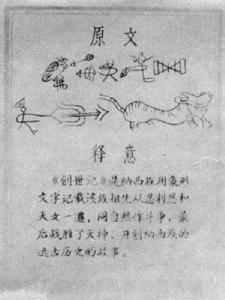 原文
释意
《创世记》是纳西族用象形
文字记载该族祖先从忍利恩和
天女一道，同自然作斗争，最
后战胜了天神，开创纳西族的
远古历史的故事。